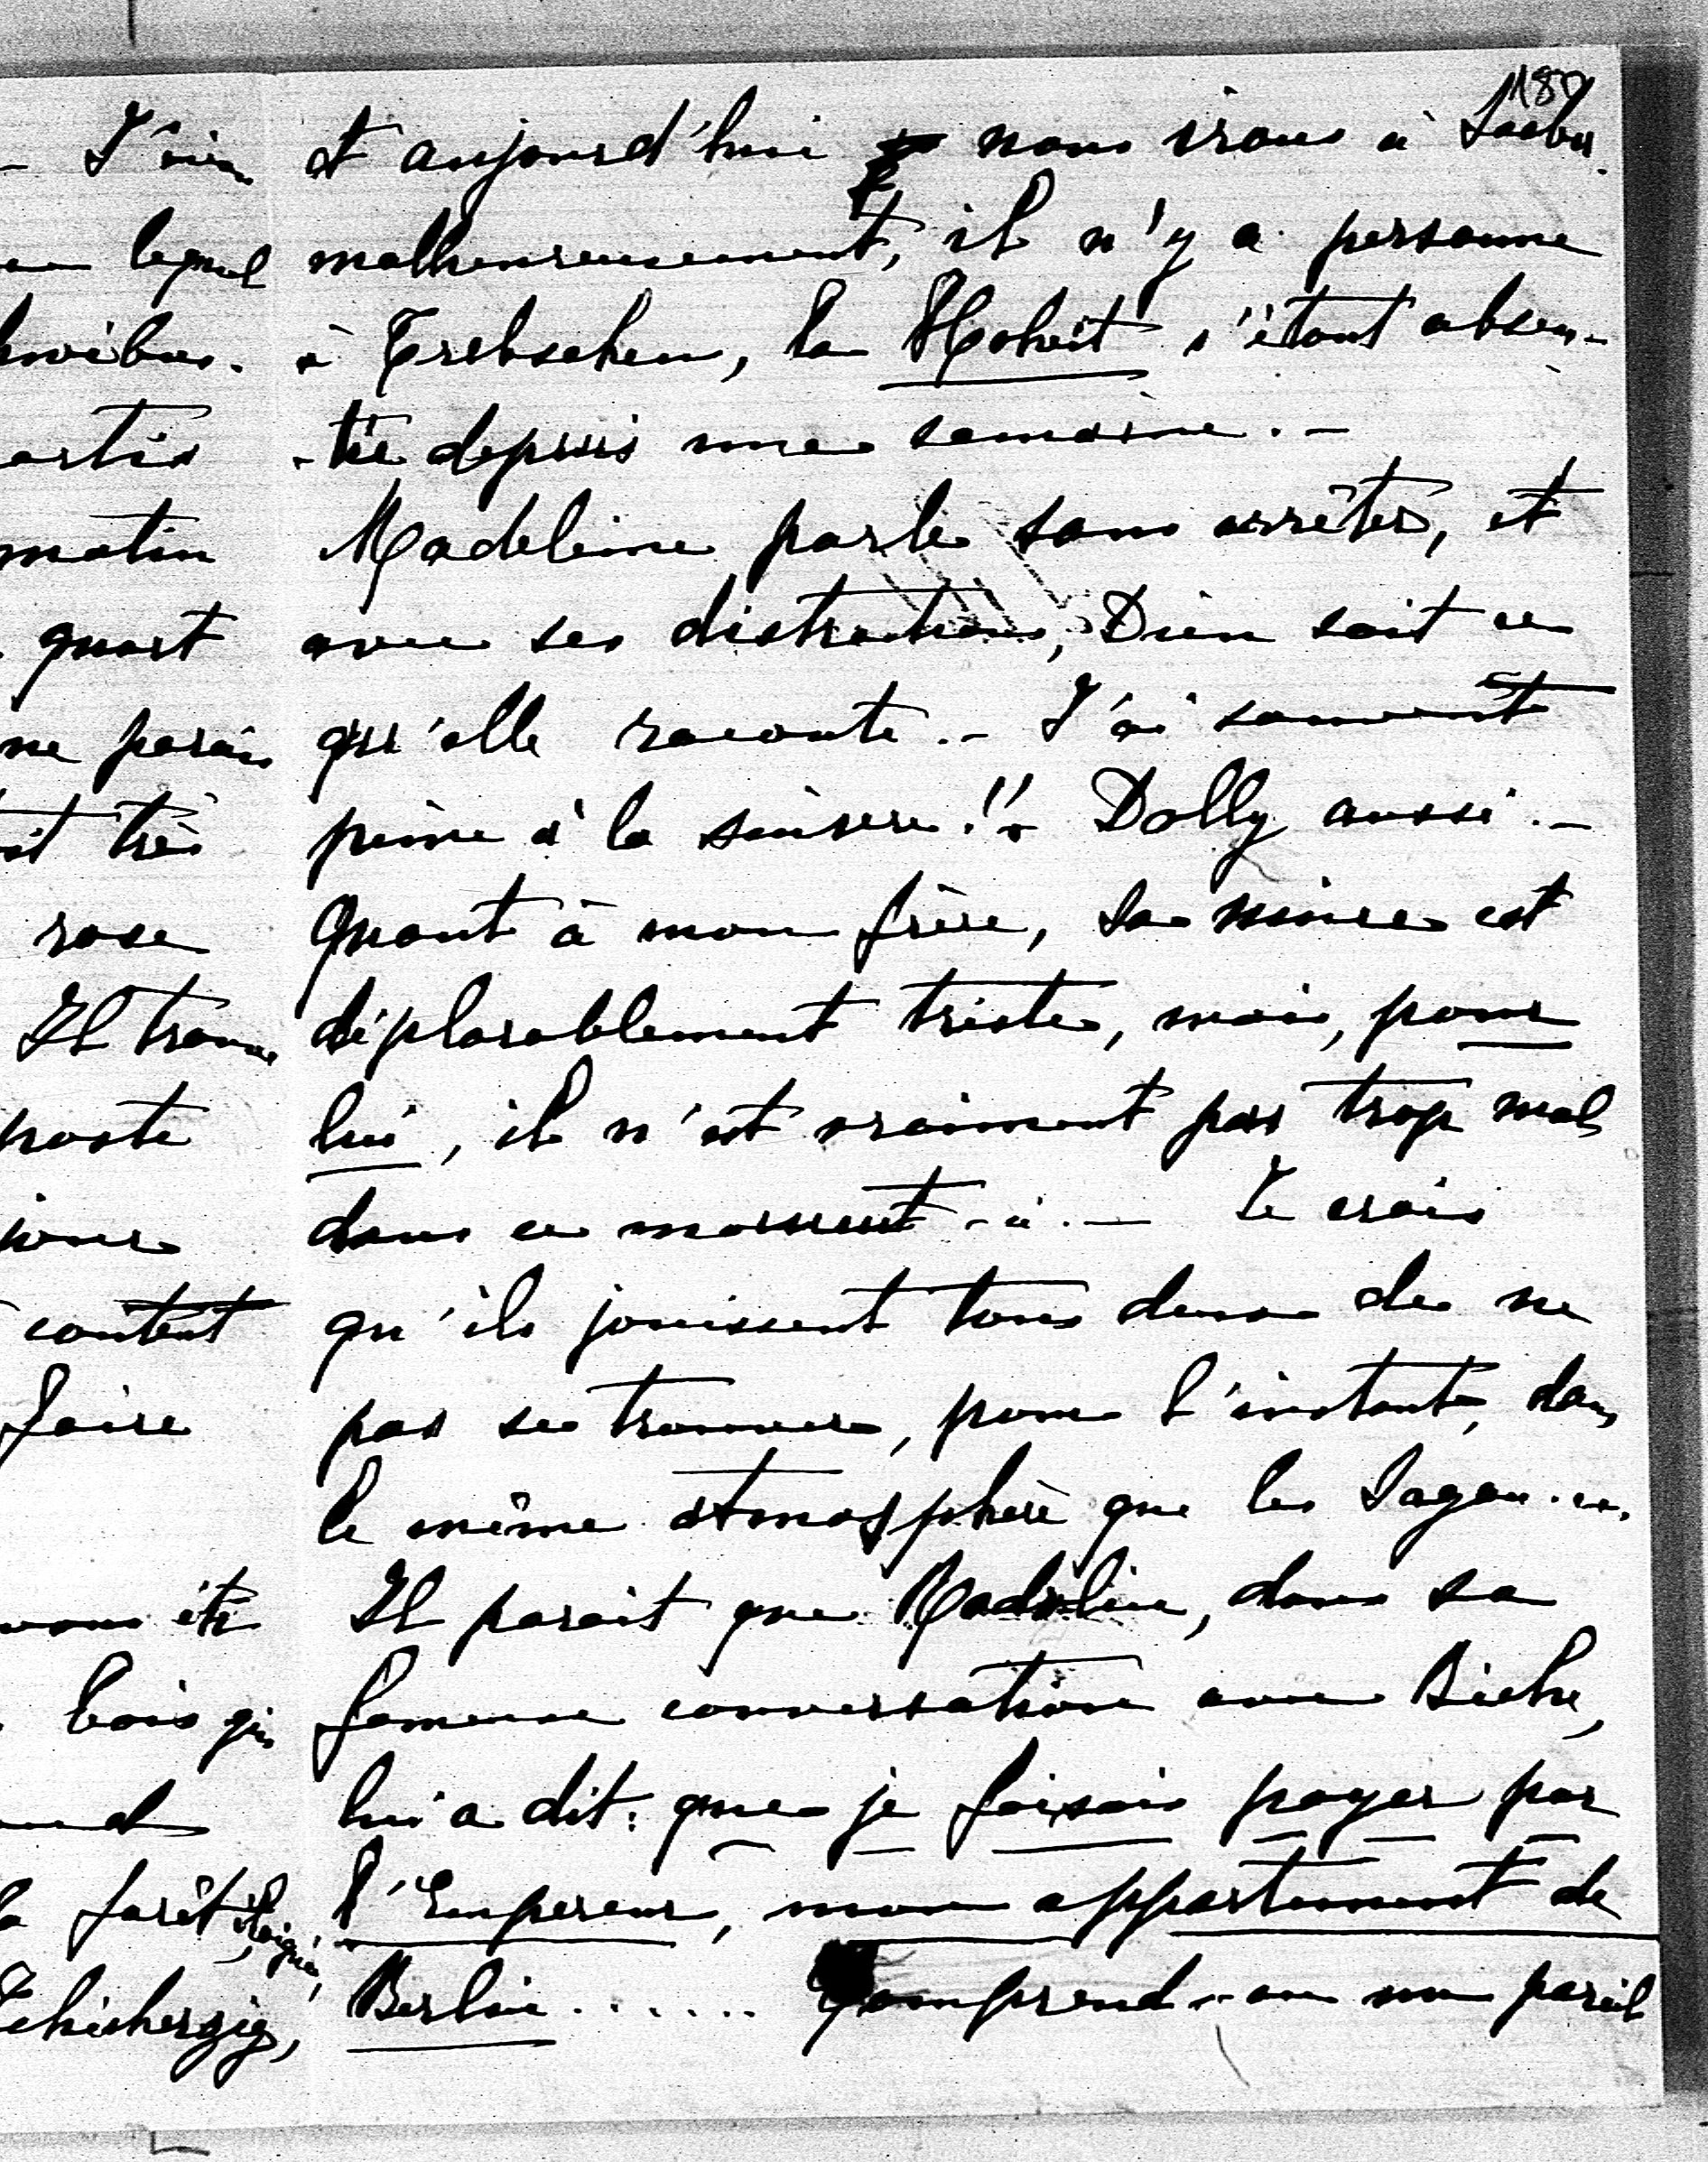 180
et aujourd'hui nous irons à Saabor.
malheureusement, il n'y a personne
à Trebschen, la Hoheit s'étant absen-
-tée depuis une semaine. -
Madeleine parle sans arrêter, et
avec ses distractions, Dieu sait ce
qu'elle raconte. - J'ai souvent
peine à la suivre!! Dolly aussi. -
Quant à mon frère, sa mine est
déplorablement triste, mais, pour
lui, il n'est vraiment pas trop mal
dans ce moment-ci. - Je crois
qu'ils jouissent tous deux de ne
pas se trouver, pour l'instant, dans
le même atmosphère que les Sagan...
Il parait que Madeleine, dans sa
fameuse conversation avec Biche,
lui a dit: que je faisais payer par
l'Empereur, mon appartement de
Berlin ...... Comprend-on un pareil
- J'ai
lequel
matin
quart
ne parais
très
rose
Il trouve
poste
content
faire
vons été
bois qui
la forêt, éloignée,
Tchicherzig,